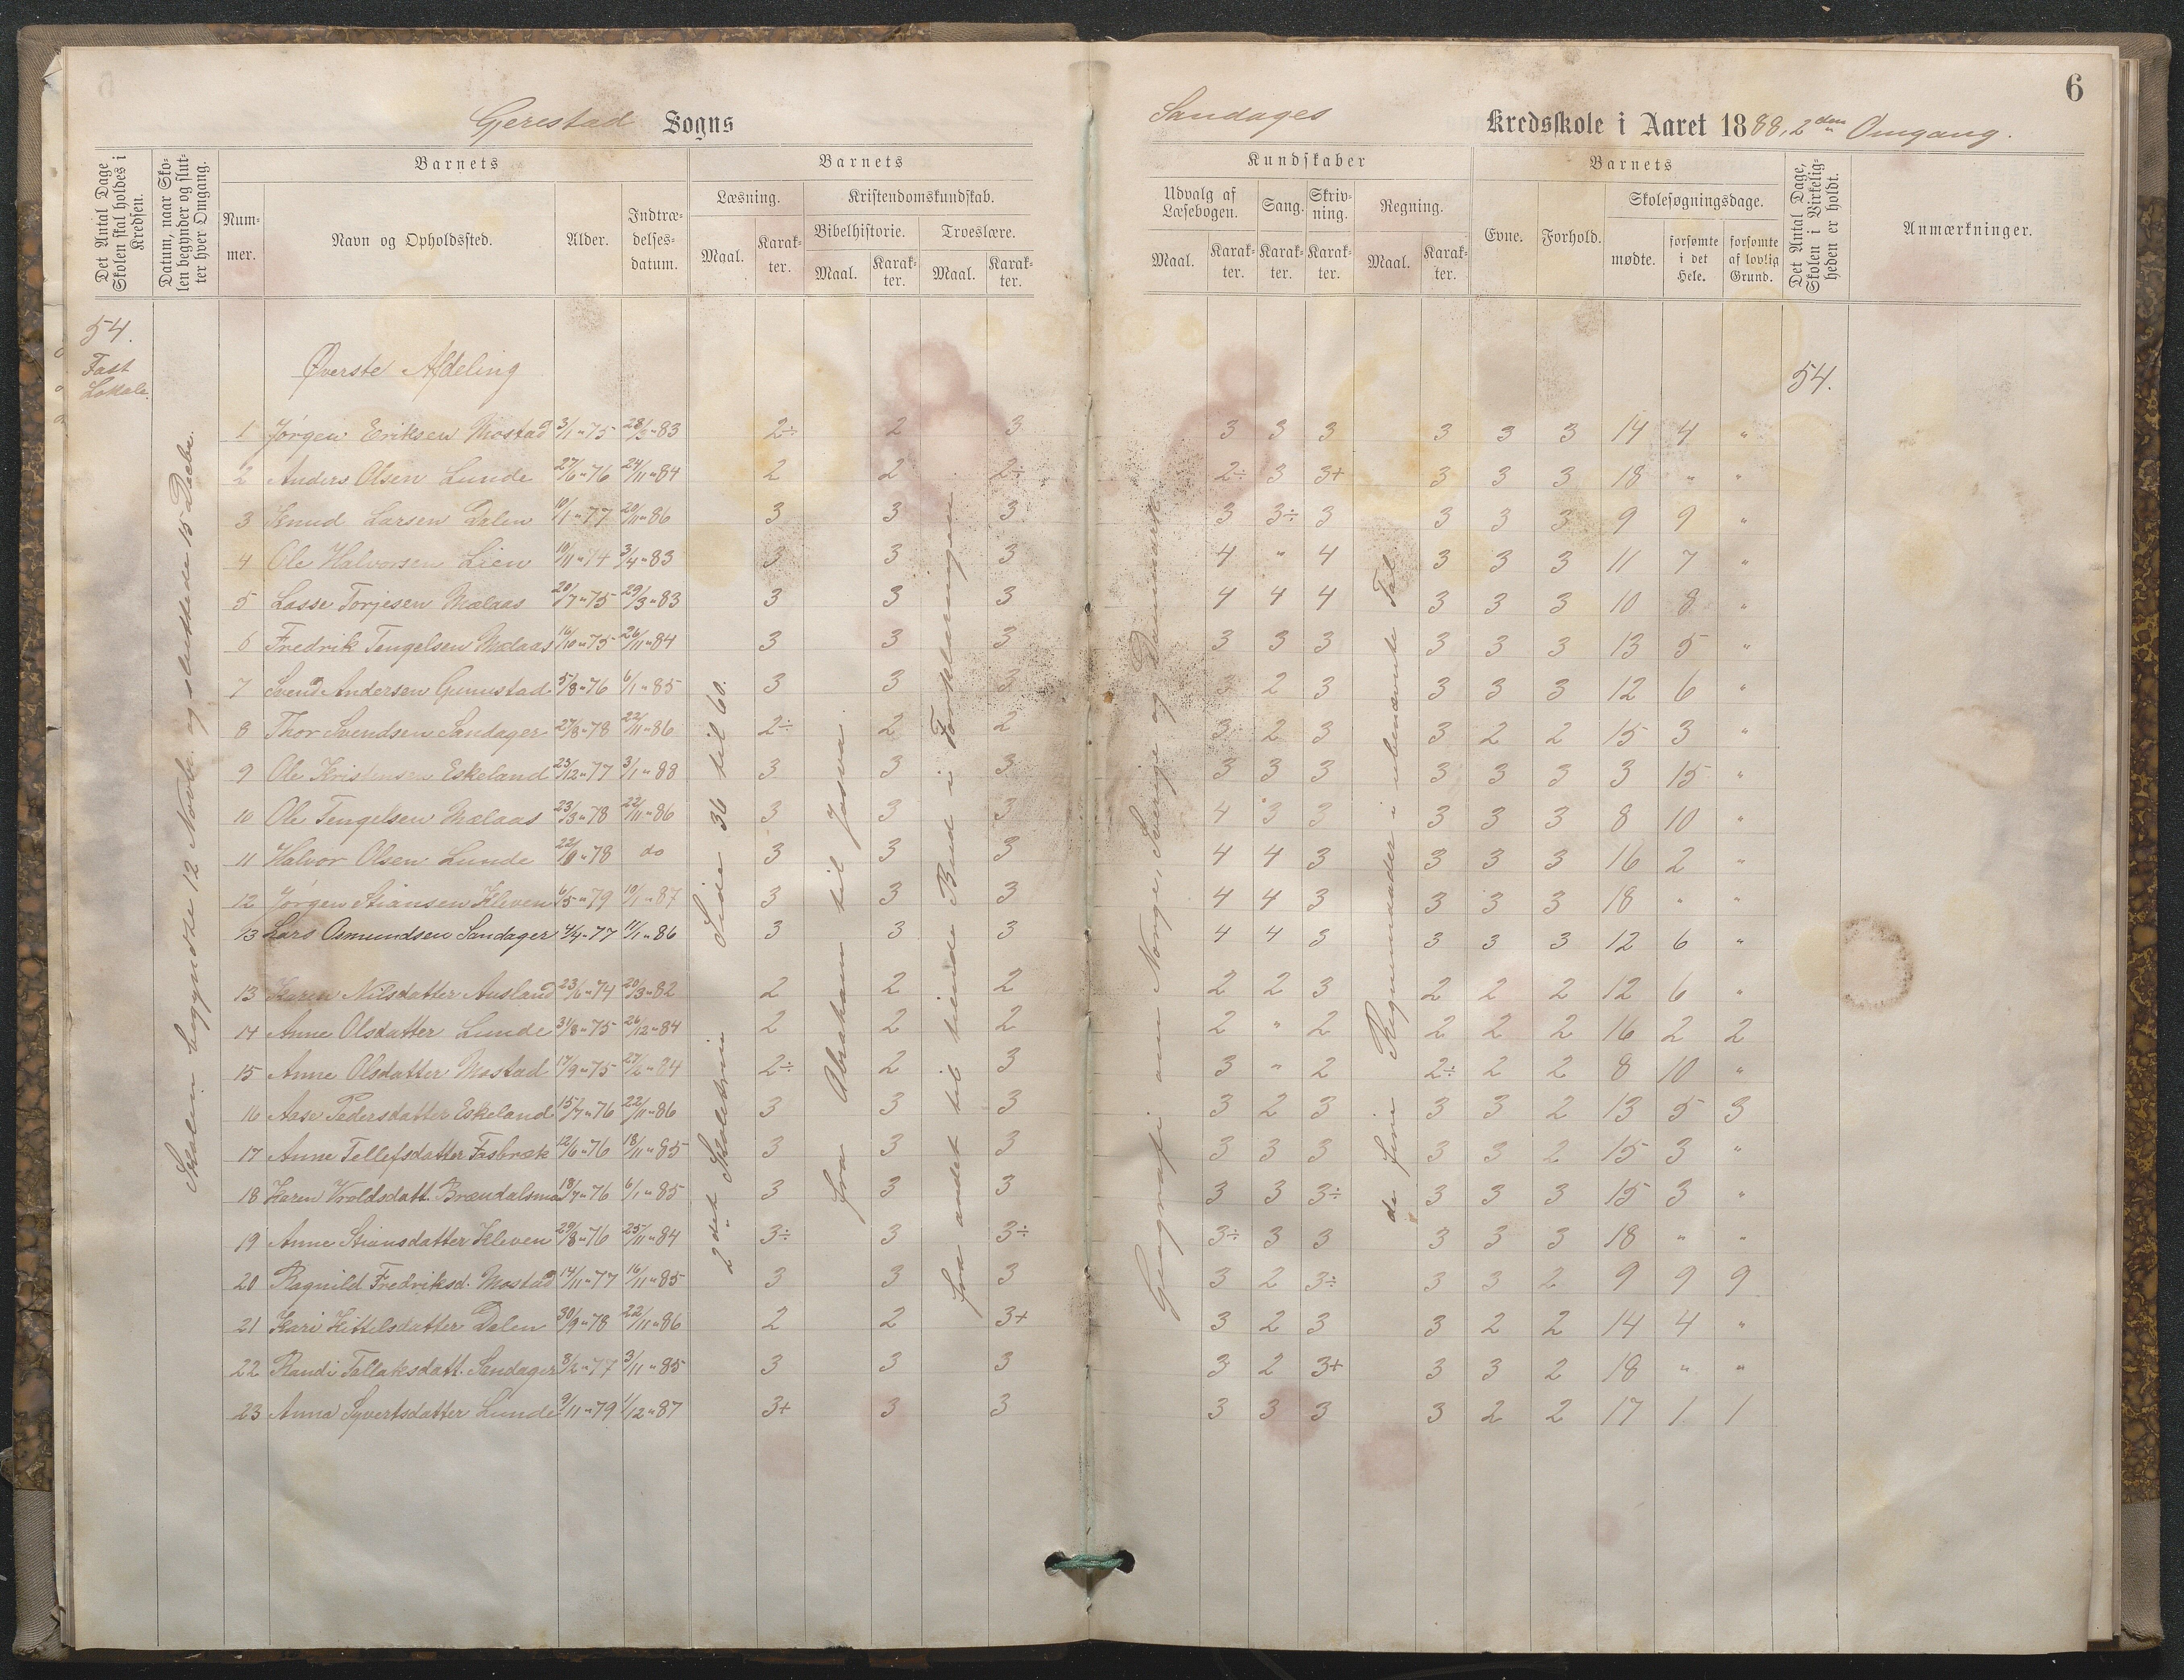 6
Gjerestad Sogns
Sandages Kredsskole i Aaret 1888, 2den Omgang.
Det Antal Dage Skolen skal holdes i Kredsen.
Datum, naar Skolen begynder og slutter hver Omgang.
Barnets
Nummer.
Navn og Opholdssted.
Alder.
Indtrædelsesdatum.
Barnets
Læsning.
Maal.
Karakter.
Kristendomskundskab.
Bibelhistorie.
Maal.
Karakter.
Troeslære.
Maal.
Karakter.
Kundskaber
Udvalg af Læsebogen.
Maal.
Karakter.
Sang.
Karakter.
Skrivning.
Karakter.
Regning.
Maal.
Karakter.
Barnets
Evne.
Forhold.
Skolesøgningsdage.
mødte.
forsømte i det Hele.
forsømte af lovlig Grund.
Det Antal Dage, Skolen i Virkeligheden er holdt.
Anmærkninger.
54.
Fast
Lokale.
Øverste Afdeling
54.
Skolen begyndte 12 Novbr. og sluttede 15 Decbr.
2det Skoletrin Side 36 til 60.
fra Abraham til Josva.
fra andet til tiende Bud i Forklaringen
Geografi om Norge, Sverige og Danmark
de fire Regnemaader i ubenævnte Tal
1 Jørgen Eriksen Mostad 3/1"75 28/3"83 2÷ 2 3 3 3 3 3 3 3 14 4 "
2 Anders Olsen Lunde 27/6"76 24/11"84 2 2 2÷ 2÷ 3 3+ 3 3 3 18 " "
3 Knud Larsen Dalen 10/1"77 20/11"86 3 3 3 3 3÷ 3 3 3 3 9 9 "
4 Ole Halvorsen Lien 10/11"74 3/4"83 3 3 3 4 " 4 3 3 3 11 7 "
5 Lasse Torjesen Mælaas 20/7"75 29/3"83 3 3 3 4 4 4 3 3 3 10 8 "
6 Fredrik Tengelsen Mælaas 16/10"75 26/11"84 3 3 3 3 3 3 3 3 3 13 5 "
7 Svend Andersen Gunustad 5/8"76 6/1"85 3 3 3 3 2 3 3 3 3 12 6 "
8 Thor Svendsen Sandager 27/8"78 22/11"86 2÷ 2 2 3 2 3 3 2 2 15 3 "
9 Ole Kristensen Eskeland 23/12"77 3/1"88 3 3 3 3 3 3 3 3 3 3 15 "
10 Ole Tengelsen Mælaas 23/3"78 22/11"86 3 3 3 4 3 3 3 3 3 8 10 "
11 Halvor Olsen Lunde 22/9"78 do 3 3 3 4 4 3 3 3 3 16 2 "
12 Jørgen Stiansen Kleven 6/5"79 10/1"87 3 3 3 4 4 3 3 3 3 18 " "
13 Lars Osmundsen Sandager 4/4"77 11/1"86 3 3 3 4 4 3 3 3 3 12 6 "
13 Karen Nilsdatter Ausland 23/6"74 20/3"82 2 2 2 2 2 3 2 2 2 12 6 "
14 Anne Olsdatter Lunde 31/8"75 26/12"84 2 2 2 2 " 2 2 2 2 16 2 2
15 Anne Olsdatter Mostad 17/9"75 27/2"84 2÷ 2 3 3 " 2 2÷ 2 2 8 10 "
16 Aase Pedersdatter Eskeland 15/7"76 22/11"86 3 3 3 3 2 3 3 3 2 13 5 3
17 Anne Tellefsdatter Fasbræk 12/6"76 18/11"85 3 3 3 3 3 3 3 3 2 15 3 "
18 Karen Vroldsdatt. Brændalsmo 18/7"76 6/1"85 3 3 3 3 3 3÷ 3 3 3 15 3 "
19 Anne Stiansdatter Kleven 29/8"76 25/11"84 3÷ 3 3÷ 3÷ 3 3 3 3 3 18 " "
20 Ragnild Fredriksd. Mostad 14/11"77 16/11"85 3 3 3 3 2 3÷ 3 3 2 9 9 9
21 Kari Kittilsdatter Dalen 30/9"78 22/11"86 2 2 3+ 3 2 3 3 2 2 14 4 "
22 Randi Tallaksdatt. Sandager 8/2"77 3/11"85 3 3 3 3 2 3+ 3 3 2 18 " "
23 Anna Syvertsdatter Lunde 9/11"79 1/12"87 3+ 3 3 3 3 3 3 2 2 17 1 1